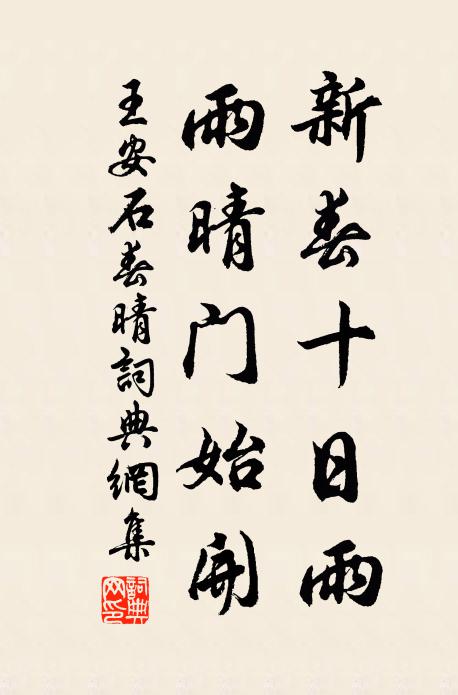 新春十日雨
雨晴门始開
王安石春晴詞典網集
詞典网印